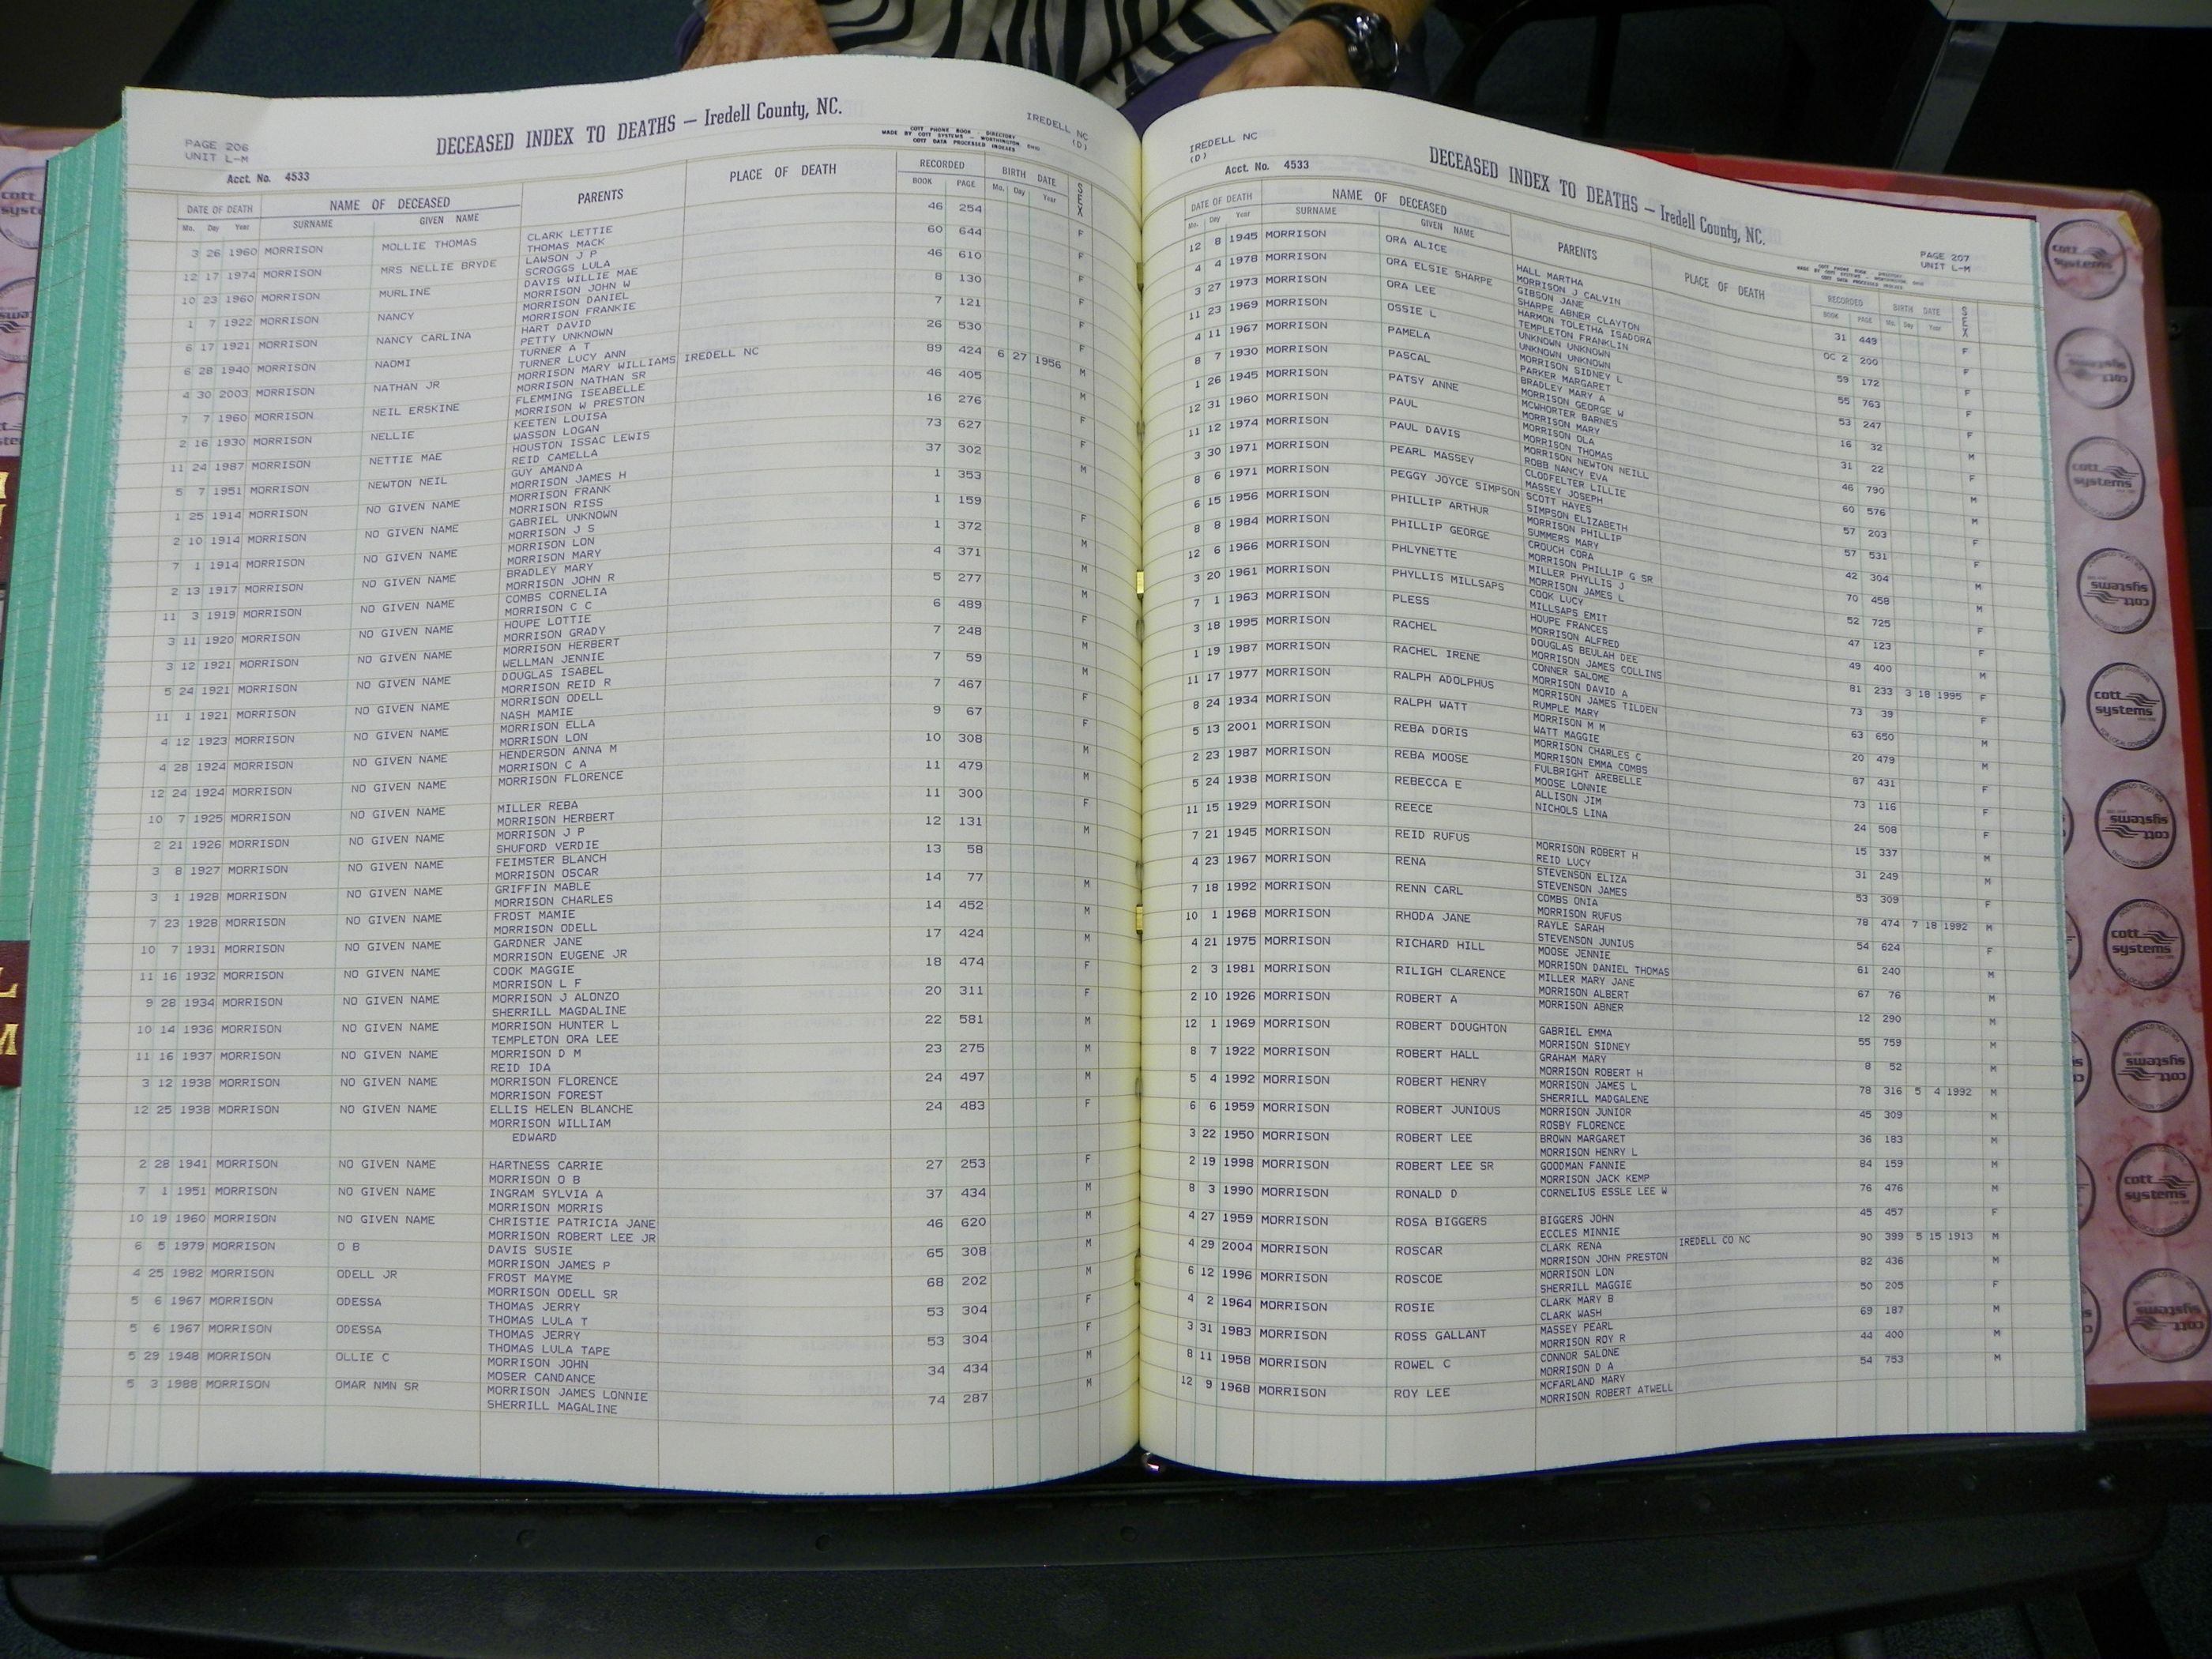 PAGE 206
UNIT L-M
DECEASED INDEX TO DEATHS — Iredell County, NC.
COTT PHONE BOOK - DIRECTORY
MADE BY COTT SYSTEMS - WORTHINGTON OHIO
COTT DATA PROCESSED INDEXES
IREDELL NC
(D)
Acct. No. 4533
DATE OF DEATH NAME OF DECEASED PARENTS PLACE OF DEATH RECORDED BIRTH DATE SEX
Mo. Day Year SURNAME GIVEN NAME BOOK PAGE Mo. Day Year
3 26 1960 MORRISON MOLLIE THOMAS CLARK LETTIE 46 254 F
THOMAS MACK
12 17 1974 MORRISON MRS NELLIE BRYDE LAWSON J P 60 644 F
SCROGGS LULA
10 23 1960 MORRISON MURLINE DAVIS WILLIE MAE 46 610 F
MORRISON JOHN W
1 7 1922 MORRISON NANCY MORRISON DANIEL 8 130 F
MORRISON FRANKIE
6 17 1921 MORRISON NANCY CARLINA HART DAVID 7 121 F
PETTY UNKNOWN
6 28 1940 MORRISON NAOMI TURNER A T 26 530 F
TURNER LUCY ANN
4 30 2003 MORRISON NATHAN JR MORRISON MARY WILLIAMS IREDELL NC 89 424 6 27 1956 M
MORRISON NATHAN SR
7 7 1960 MORRISON NEIL ERSKINE FLEMMING ISEABELLE 46 405 M
MORRISON W PRESTON
2 16 1930 MORRISON NELLIE KEETEN LOUISA 16 276 F
WASSON LOGAN
11 24 1987 MORRISON NETTIE MAE HOUSTON ISSAC LEWIS 73 627 F
REID CAMELLA
5 7 1951 MORRISON NEWTON NEIL GUY AMANDA 37 302 M
MORRISON JAMES H
1 25 1914 MORRISON NO GIVEN NAME MORRISON FRANK 1 353
MORRISON RISS
2 10 1914 MORRISON NO GIVEN NAME GABRIEL UNKNOWN 1 159 F
MORRISON J S
7 1 1914 MORRISON NO GIVEN NAME MORRISON LON 1 372 M
MORRISON MARY
2 13 1917 MORRISON NO GIVEN NAME BRADLEY MARY 4 371 M
MORRISON JOHN R
11 3 1919 MORRISON NO GIVEN NAME COMBS CORNELIA 5 277 M
MORRISON C C
3 11 1920 MORRISON NO GIVEN NAME HOUPE LOTTIE 6 489 F
MORRISON GRADY
3 12 1921 MORRISON NO GIVEN NAME MORRISON HERBERT 7 248 M
WELLMAN JENNIE
5 24 1921 MORRISON NO GIVEN NAME DOUGLAS ISABEL 7 59 M
MORRISON REID R
11 1 1921 MORRISON NO GIVEN NAME MORRISON ODELL 7 467 F
NASH MAMIE
4 12 1923 MORRISON NO GIVEN NAME MORRISON ELLA 9 67 F
MORRISON LON
4 28 1924 MORRISON NO GIVEN NAME HENDERSON ANNA M 10 308 M
MORRISON C A
12 24 1924 MORRISON NO GIVEN NAME MORRISON FLORENCE 11 479 M
10 7 1925 MORRISON NO GIVEN NAME MILLER REBA 11 300 F
MORRISON HERBERT
2 21 1926 MORRISON NO GIVEN NAME MORRISON J P 12 131 M
SHUFORD VERDIE
3 8 1927 MORRISON NO GIVEN NAME FEIMSTER BLANCH 13 58
MORRISON OSCAR
3 1 1928 MORRISON NO GIVEN NAME GRIFFIN MABLE 14 77 M
MORRISON CHARLES
7 23 1928 MORRISON NO GIVEN NAME FROST MAMIE 14 452 M
MORRISON ODELL
10 7 1931 MORRISON NO GIVEN NAME GARDNER JANE 17 424 M
MORRISON EUGENE JR
11 16 1932 MORRISON NO GIVEN NAME COOK MAGGIE 18 474 F
MORRISON L F
9 28 1934 MORRISON NO GIVEN NAME MORRISON J ALONZO 20 311 F
SHERRILL MAGDALINE
10 14 1936 MORRISON NO GIVEN NAME MORRISON HUNTER L 22 581 M
TEMPLETON ORA LEE
11 16 1937 MORRISON NO GIVEN NAME MORRISON D M 23 275 M
REID IDA
3 12 1938 MORRISON NO GIVEN NAME MORRISON FLORENCE 24 497 M
MORRISON FOREST
12 25 1938 MORRISON NO GIVEN NAME ELLIS HELEN BLANCHE 24 483 F
MORRISON WILLIAM
EDWARD
2 28 1941 MORRISON NO GIVEN NAME HARTNESS CARRIE 27 253 F
MORRISON O B
7 1 1951 MORRISON NO GIVEN NAME INGRAM SYLVIA A 37 434 M
MORRISON MORRIS
10 19 1960 MORRISON NO GIVEN NAME CHRISTIE PATRICIA JANE 46 620 M
MORRISON ROBERT LEE JR
6 5 1979 MORRISON O B DAVIS SUSIE 65 308 M
MORRISON JAMES P
4 25 1982 MORRISON ODELL JR FROST MAYME 68 202 M
MORRISON ODELL SR
5 6 1967 MORRISON ODESSA THOMAS JERRY 53 304 F
THOMAS LULA T
5 6 1967 MORRISON ODESSA THOMAS JERRY 53 304 F
THOMAS LULA TAPE
5 29 1948 MORRISON OLLIE C MORRISON JOHN 34 434 M
MOSER CANDANCE
5 3 1988 MORRISON OMAR NMN SR MORRISON JAMES LONNIE 74 287 M
SHERRILL MAGALINE
IREDELL NC
(D)
DECEASED INDEX TO DEATHS — Iredell County, NC.
PAGE 207
UNIT L-M
COTT PHONE BOOK - DIRECTORY
MADE BY COTT SYSTEMS - WORTHINGTON OHIO
COTT DATA PROCESSED INDEXES
Acct. No. 4533
DATE OF DEATH NAME OF DECEASED PARENTS PLACE OF DEATH RECORDED BIRTH DATE SEX
Mo. Day Year SURNAME GIVEN NAME BOOK PAGE Mo. Day Year
12 8 1945 MORRISON ORA ALICE HALL MARTHA 31 449 F
MORRISON J CALVIN
4 4 1978 MORRISON ORA ELSIE SHARPE GIBSON JANE OC 2 200 F
SHARPE ABNER CLAYTON
3 27 1973 MORRISON ORA LEE HARMON TOLETHA ISADORA 59 172 F
TEMPLETON FRANKLIN
11 23 1969 MORRISON OSSIE L UNKNOWN UNKNOWN 55 763 F
UNKNOWN UNKNOWN
4 11 1967 MORRISON PAMELA MORRISON SIDNEY L 53 247 F
PARKER MARGARET
8 7 1930 MORRISON PASCAL BRADLEY MARY A 16 32 M
MORRISON GEORGE W
1 26 1945 MORRISON PATSY ANNE MCWHORTER BARNES 31 22 F
MORRISON MARY
12 31 1960 MORRISON PAUL MORRISON OLA 46 790 M
MORRISON THOMAS
11 12 1974 MORRISON PAUL DAVIS MORRISON NEWTON NEILL 60 576 M
ROBB NANCY EVA
3 30 1971 MORRISON PEARL MASSEY CLODFELTER LILLIE 57 203 F
MASSEY JOSEPH
8 6 1971 MORRISON PEGGY JOYCE SIMPSON SCOTT HAYES 57 531 F
SIMPSON ELIZABETH
6 15 1956 MORRISON PHILLIP ARTHUR MORRISON PHILLIP 42 304 M
SUMMERS MARY
8 8 1984 MORRISON PHILLIP GEORGE CROUCH CORA 70 458 M
MORRISON PHILLIP G SR
12 6 1966 MORRISON PHLYNETTE MILLER PHYLLIS J 52 725 F
MORRISON JAMES L
3 20 1961 MORRISON PHYLLIS MILLSAPS COOK LUCY 47 123 F
MILLSAPS EMIT
7 1 1963 MORRISON PLESS HOUPE FRANCES 49 400 M
MORRISON ALFRED
3 18 1995 MORRISON RACHEL DOUGLAS BEULAH DEE 81 233 3 18 1995 F
MORRISON JAMES COLLINS
1 19 1987 MORRISON RACHEL IRENE CONNER SALOME 73 39 F
MORRISON DAVID A
11 17 1977 MORRISON RALPH ADOLPHUS MORRISON JAMES TILDEN 63 650 M
RUMPLE MARY
8 24 1934 MORRISON RALPH WATT MORRISON M M 20 479 M
WATT MAGGIE
5 13 2001 MORRISON REBA DORIS MORRISON CHARLES C 87 431 F
MORRISON EMMA COMBS
2 23 1987 MORRISON REBA MOOSE FULBRIGHT AREBELLE 73 116 F
MOOSE LONNIE
5 24 1938 MORRISON REBECCA E ALLISON JIM 24 508 F
NICHOLS LINA
11 15 1929 MORRISON REECE 15 337 M
7 21 1945 MORRISON REID RUFUS MORRISON ROBERT H 31 249 M
REID LUCY
4 23 1967 MORRISON RENA STEVENSON ELIZA 53 309 F
STEVENSON JAMES
7 18 1992 MORRISON RENN CARL COMBS ONIA 78 474 7 18 1992 M
MORRISON RUFUS
10 1 1968 MORRISON RHODA JANE RAYLE SARAH 54 624 F
STEVENSON JUNIUS
4 21 1975 MORRISON RICHARD HILL MOOSE JENNIE 61 240 M
MORRISON DANIEL THOMAS
2 3 1981 MORRISON RILIGH CLARENCE MILLER MARY JANE 67 76 M
MORRISON ALBERT
2 10 1926 MORRISON ROBERT A MORRISON ABNER 12 290 M
12 1 1969 MORRISON ROBERT DOUGHTON GABRIEL EMMA 55 759 M
MORRISON SIDNEY
8 7 1922 MORRISON ROBERT HALL GRAHAM MARY 8 52 M
MORRISON ROBERT H
5 4 1992 MORRISON ROBERT HENRY MORRISON JAMES L 78 316 5 4 1992 M
SHERRILL MADGALENE
6 6 1959 MORRISON ROBERT JUNIOUS MORRISON JUNIOR 45 309 M
ROSBY FLORENCE
3 22 1950 MORRISON ROBERT LEE BROWN MARGARET 36 183 M
MORRISON HENRY L
2 19 1998 MORRISON ROBERT LEE SR GOODMAN FANNIE 84 159 M
MORRISON JACK KEMP
8 3 1990 MORRISON RONALD D CORNELIUS ESSLE LEE W 76 476 M
4 27 1959 MORRISON ROSA BIGGERS BIGGERS JOHN 45 457 F
ECCLES MINNIE
4 29 2004 MORRISON ROSCAR CLARK RENA IREDELL CO NC 90 399 5 15 1913 M
MORRISON JOHN PRESTON
6 12 1996 MORRISON ROSCOE MORRISON LON 82 436 M
SHERRILL MAGGIE
4 2 1964 MORRISON ROSIE CLARK MARY B 50 205 F
CLARK WASH
3 31 1983 MORRISON ROSS GALLANT MASSEY PEARL 69 187 M
MORRISON ROY R
8 11 1958 MORRISON ROWEL C CONNOR SALONE 44 400 M
MORRISON D A
12 9 1968 MORRISON ROY LEE MCFARLAND MARY 54 753 M
MORRISON ROBERT ATWELL
cott systems
cott systems
cott systems
cott systems
cott systems